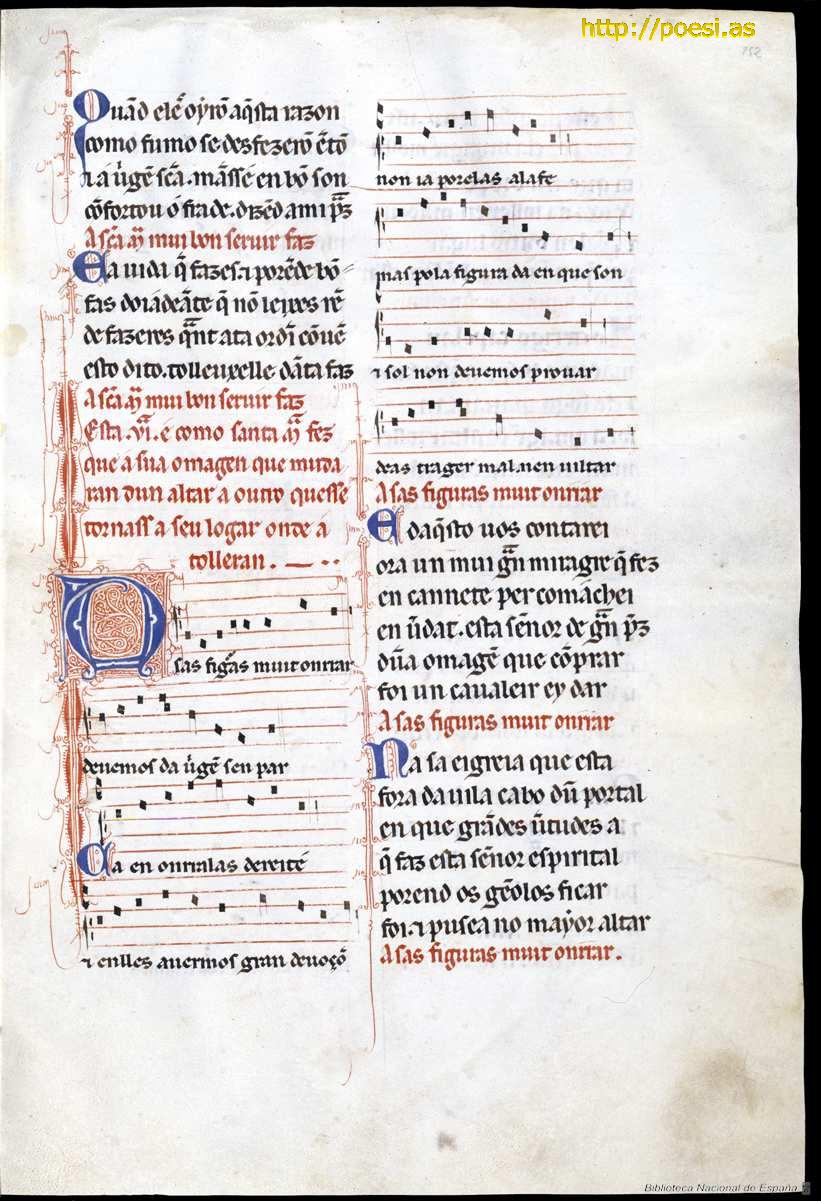 http://poesi.as
Quãd ele͂ oyrõ aq̃sta razon
como fumo se desfezerõ e͂tõ
⁊ a ũge͂ sc̃a. mãsse en bõ son
cõfortou o frade. dizẽd a mi p̃z
A sc̃a m̃ mui bon seruir faz
Ea uida q̃ fazes ⁊ porẽde bõ
fas doiádeãte q̃ nõ leixes rẽ
de fazeres quãt ata ordĩ cõuẽ
esto dito. tolleuxelle dãta faz
A sc̃a m̃ mui bon seruir faz
Esta .vi. é como santa m̃ fez
que a sua omagen que muda
ran dun altar a outro quesse
tornass a seu logar onde a
tolleran.
D
sas figãs muit onrrar
deuemos da ũgẽ sen par
Ca en onrralas dereit é
⁊ enlles auermos gran deuoçõ
non ia por elas a la fe
mas pola figura da en que son
⁊ sol non deuemos prouar
deas trager mal. nen uiltar
A sas figuras muit onrrar
E daq̃sto uos contarei
ora un mui grã miragre q̃ fez
en cannete per com achei
en ũdat. esta sẽnor de grã p̃z
dũa omagẽ que cõprar
foi un caualeir ey dar
A sas figuras muit onrrar
Na sa eigreia que esta
fora da uila cabo dũ portal
en que grãdes ũtudes a
q̃ faz esta sẽnor espirital
porend os gẽolos ficar
foi. ⁊ pusea no mayor altar
A sas figuras muit onrrar.
Biblioteca Nacional de España